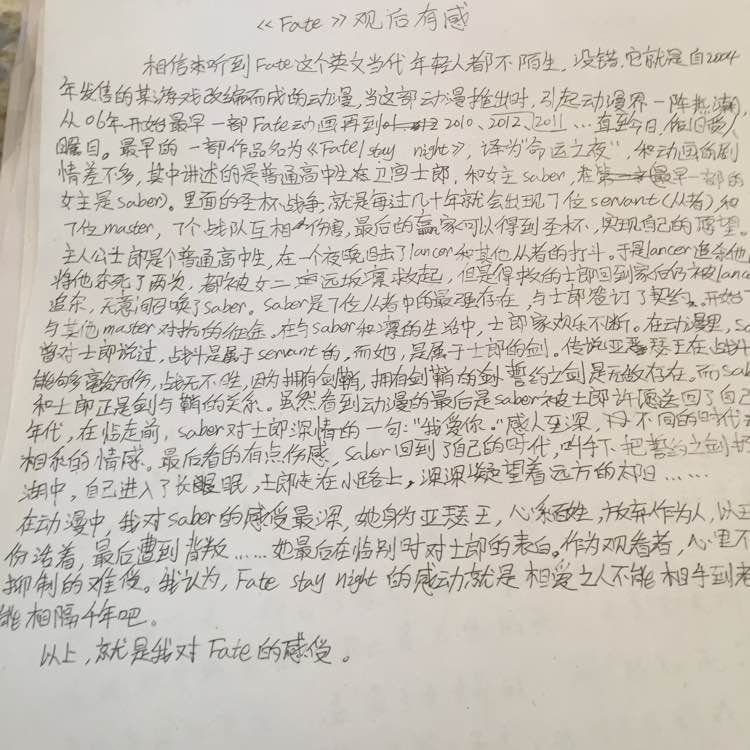 《Fate》观后有感
相信来听到Fate这个英文当代年轻人都不陌生，没错，它就是自2004
年发售的某游戏改编而成的动漫，当这部动漫推出时，引起动漫界一阵热潮，
从06年开始最早一部Fate动画再到 2010、2012、2011……直至今日，依旧受人
瞩目。最早的一部作品名为《Fate/stay night》，译为"命运之夜"，和动画的剧
情差不多，其中讲述的是普通高中生在卫宫士郎，和女主saber，在最早一部的
女主是saber）。里面的圣杯战争，就是每过几十年就会出现7位servant（从者）和
7位master，7个战队互相伤害，最后的赢家可以得到圣杯，实现自己的愿望。
主人公士郎是个普通高中生，在一个夜晚目击了lancer和其他从者的打斗。于是lancer追杀他
将他杀死了两次，都被女二远坂凛救起，但是得救的士郎回到家后仍被lance
追杀，无意间召唤了saber。saber是7位从者中的最强存在，与士郎签订了契约。开始了
与其他master对抗的征途。在与saber和凛的生活中，士郎家欢乐不断。在动漫里，sa
曾对士郎说过，战斗是属于servant的，而她，是属于士郎的剑。传说亚瑟王在战斗
能够毫发无伤，战无不胜，因为拥有剑鞘，拥有剑鞘的剑誓约之剑是无敌存在。而sab
和士郎正是剑与鞘的关系。虽然看到动漫的最后是saber被士郎许愿送回了自己
年代，在临走前，saber对士郎深情的一句："我爱你。"感人至深，不同的时代
相系的情感。最后看的有点伤感，saber回到了自己的时代，叫手下把誓约之剑扔
湖中，自己进入了长眠，士郎走在小路上，深深凝望着远方的太阳……
在动漫中，我对saber的感受最深，她身为亚瑟王，心系百姓，放弃作为人，以王
份活着，最后遭到背叛……她最后在临别时对士郎的表白。作为观看者，心里不
抑制的难受。我认为，Fate stay night的感动就是相爱之人不能相手到老
能相隔千年吧。
以上，就是我对Fate的感受。